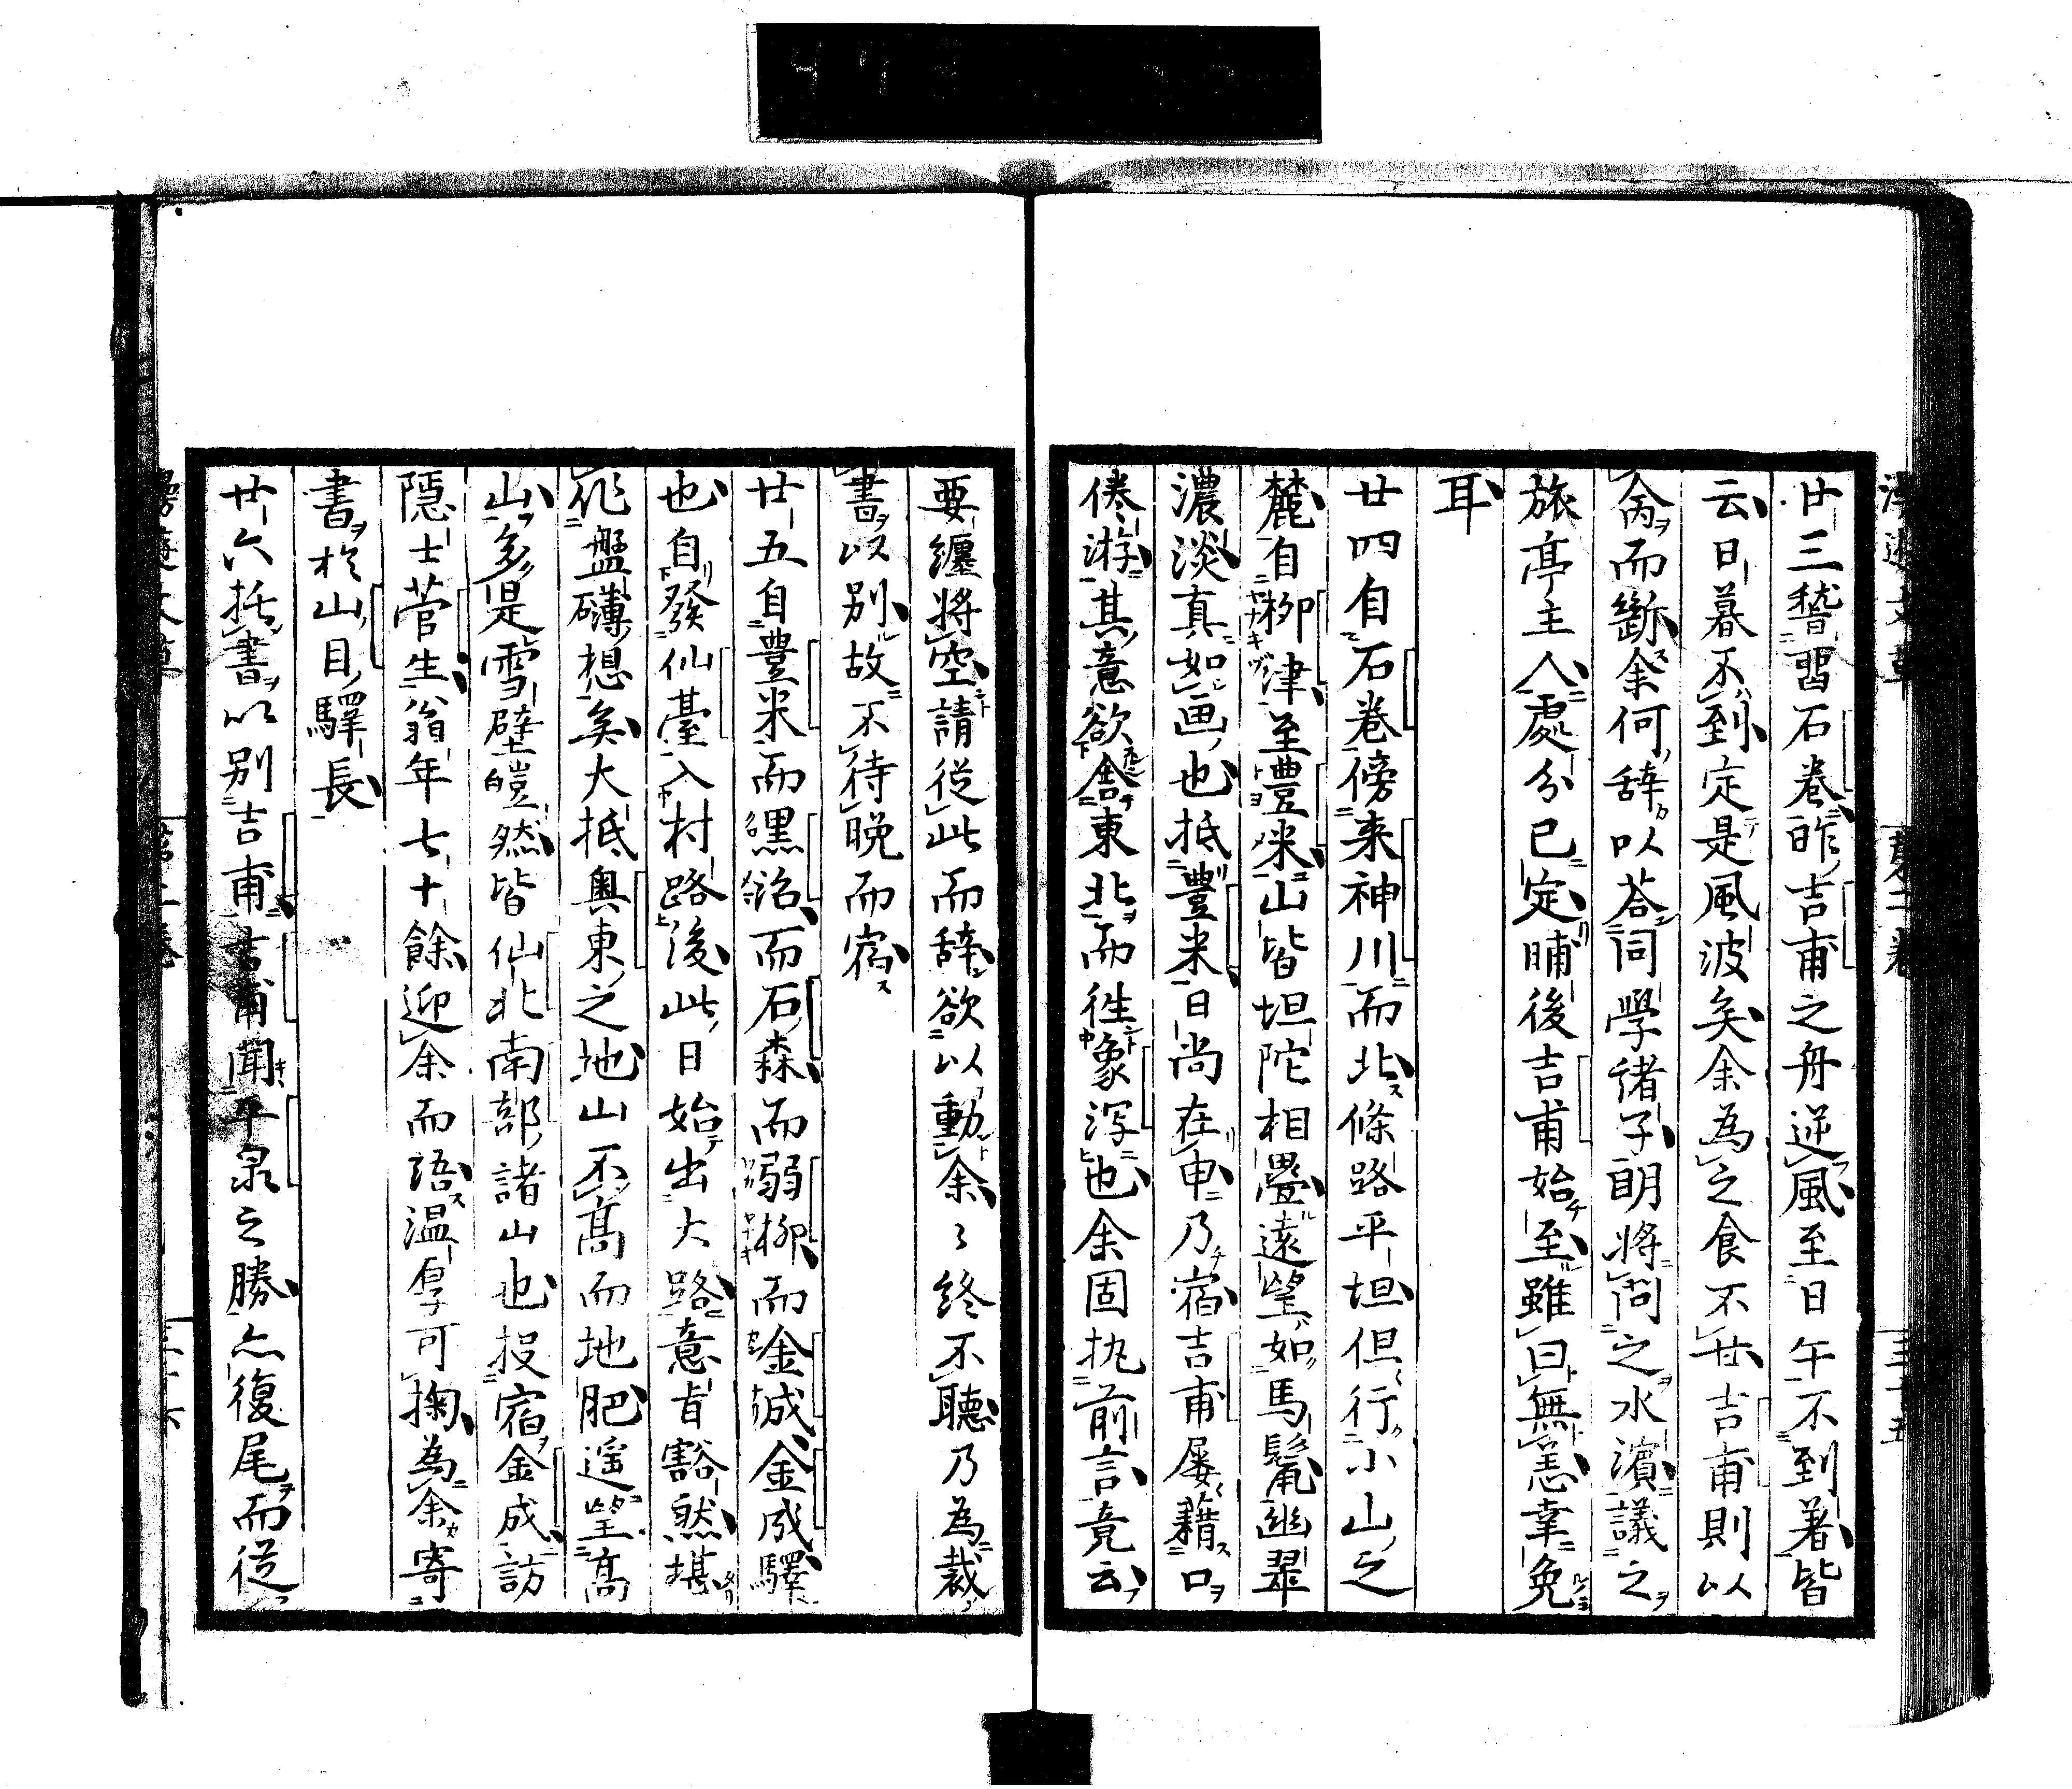 廿三、暫留石卷、昨吉甫之舟逆風、至日午不到著、皆
云、日暮不到、定是風波矣、余為之食不甘、吉甫則以
而斷、余何辞以荅同學諸子、明將問之水濱、議之
旅亭主人、處分已定、晡後吉甫始至、雖曰無恙幸免
耳
廿四自石卷傍来神川而北、條路平坦、但行小山之
麓、自柳津、至豊米、山皆坦陀相畳、遠望如馬鬣、幽翠
濃淡、真如画也、抵豊米、日尚在申、乃宿、吉甫屡藉口
倦游、其意欲舎東北而徃象潟也、余固执前言、竟云
要纏將空、請従此而辞、欲以動余、々終不聽、乃為裁
書以別、故不待晚而宿
廿五自豊米而黑沼、而石森、而溺柳、而金城、金成驛
也、自發仙臺、入村路後、此日始出大路、意旨豁然、堪
作盤礴想矣、大抵奥東之地、山不高而地肥、遥望高
山、多是雪壁皚然、皆仙北南部諸山也、投宿金成、訪
隱士菅生、翁年七十餘、迎余而語、温厚可掬、為余寄
書於山目驛長
廿六、托書以別吉甫、吉甫聞平泉之勝、亦復尾而従